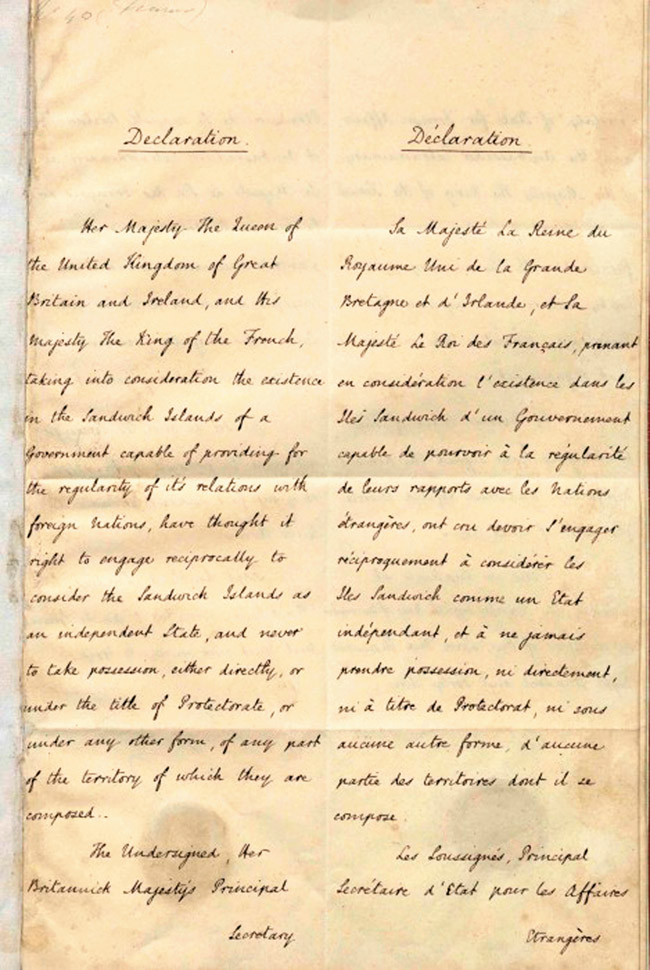 Declaration.
Her Majesty The Queen of
the United Kingdom of Great
Britain and Ireland, and His
Majesty The King of the French,
taking into consideration the existence
in the Sandwich Islands of a
Government capable of providing for
the regularity of it's relations with
foreign Nations, have thought it
right to engage reciprocally to
consider the Sandwich Islands as
an independent State, and never
to take possession, either directly, or
under the title of Protectorate, or
under any other form, of any part
of the territory of which they are
composed..
The Undersigned, Her
Britannick Majesty's Principal
Secretary
Déclaration.
Sa Majesté La Reine du
Royaume Uni de la Grande
Bretagne et d'Irlande, et Sa
Majesté Le Roi des Français, prenant
en considération l'existence dans les
Iles Sandwich d'un Gouvernement
capable de pourvoir à la régularité
de leurs rapports avec les Nations
étrangères, ont cru devoir S'engager
réciproquement à considérer les
Iles Sandwich comme un Etat
indépendant, et à ne jamais
prendre possession, ni directement,
ni à titre de Protectorat, ni sous
aucune autre forme, d'aucune
partie des territoires dont il se
compose.
Les Soussignés, Principal
Secrétaire d'Etat pour les Affaires
Etrangères